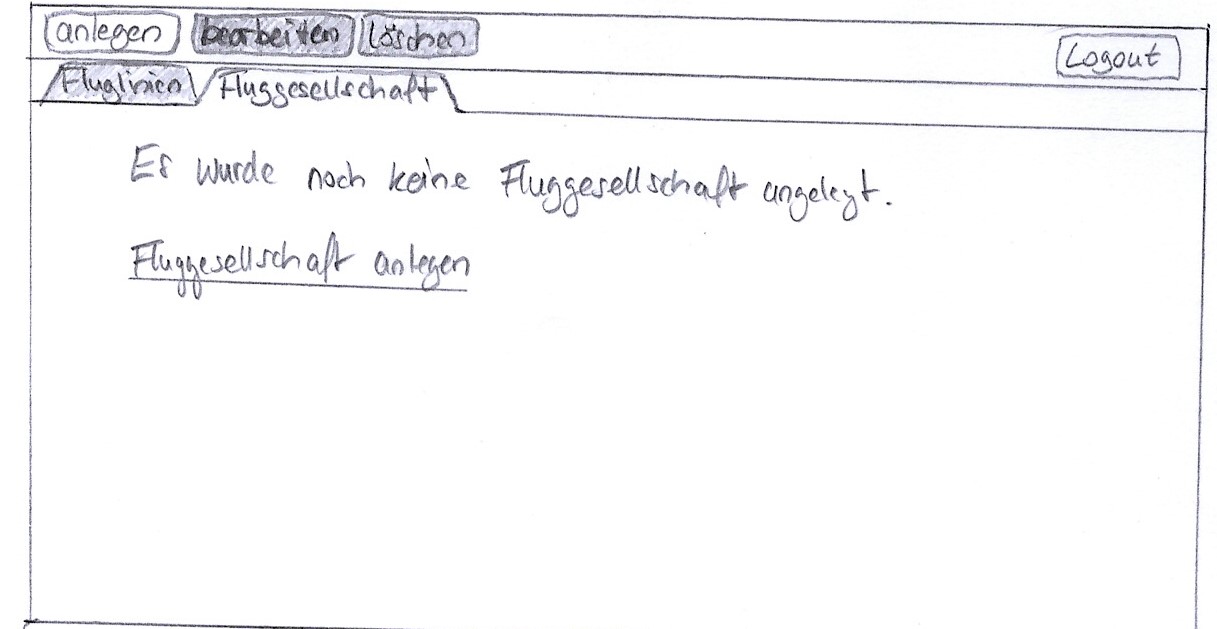 anlegen bearbeiten löschen Logout
Fluglinien Fluggesellschaft
Es wurde noch keine Fluggesellschaft angelegt.
Fluggesellschaft anlegen